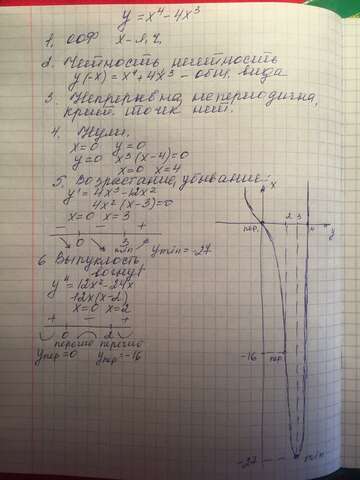 y = x⁴ - 4x³
1. ООФ x - л.ч.
2. Четность нечетность
y(-x) = x⁴ + 4x³ - общ. вида
3. Непрерывна, непериодична,
крит. точек нет.
4. Нули.
x=0 y=0
y=0 x³(x-4)=0
x=0 x=4
5. Возрастание, убывание:
y' = 4x³ - 12x²
4x²(x-3)=0
x=0 x=3
- - +
0 min 3 ymin = -27
6 Выпуклость,
вогнут
y" = 12x² - 24x
12x(x-2)
x=0 x=2
+ - +
0 2
перегиб перегиб
yпер=0 yпер=-16
x
2 3 4
y
пер.
-16
пер.
-27
min